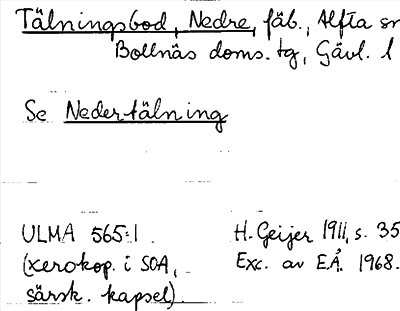 Tälningsbod, Nedre, fäb., Alfta sn
Bollnäs doms. tg, Gävl. l
Se Nedertälning
ULMA 565:1
(xerokop. i SOA,
särsk. kapsel).
H. Geijer 1911, s. 35
Exc. av E.Å. 1968.